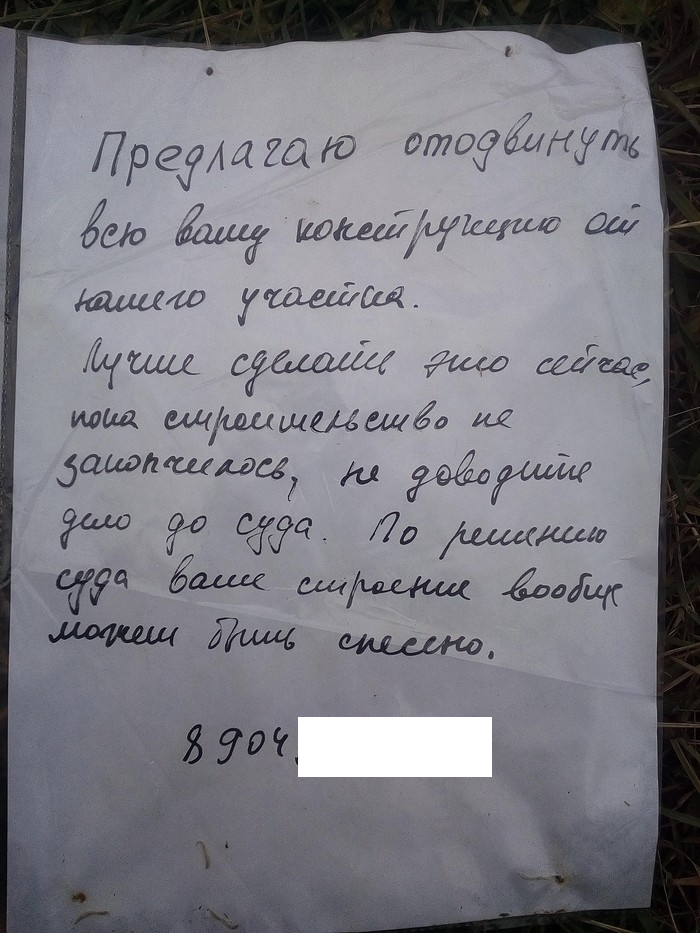 Предлагаю отодвинуть
всю вашу конструкцию от
нашего участка.
Лучше сделайте это сейчас,
пока строительство не
закончилось, не доводите
дело до суда. По решению
суда ваше строение вообще
может быть снесено.
8904